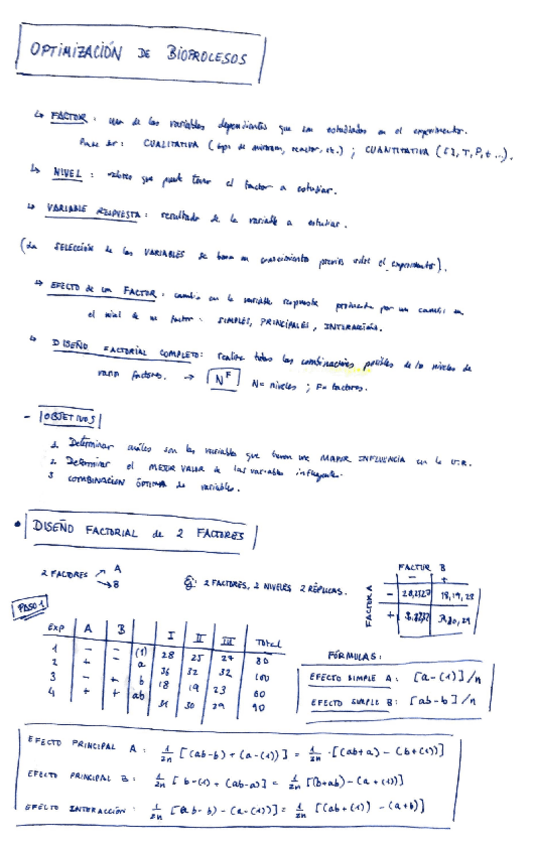 OPTIMIZACIÓN DE BIOPROCESOS
↳ FACTOR: una de las variables dependientes que son estudiadas en el experimento.
Puede ser: CUALITATIVA (tipo de microorg, reactor, etc.); CUANTITATIVA ([ ], T, P, t ...).
↳ NIVEL: valores que puede tener el factor a estudiar.
↳ VARIABLE RESPUESTA: resultado de la variable a estudiar.
(La SELECCIÓN de las VARIABLES se basa en conocimientos previos sobre el experimento).
↳ EFECTO de un FACTOR: cambio en la variable respuesta producida por un cambio en
el nivel de un factor: SIMPLES, PRINCIPALES, INTERACCIÓN.
↳ DISEÑO FACTORIAL COMPLETO: realiza todas las combinaciones posibles de los niveles de
varios factores. → N^F N= niveles ; F= factores.
- OBJETIVOS
1. Determinar cuáles son las variables que tienen una MAYOR INFLUENCIA en la V.R.
2. Determinar el MEJOR VALOR de las variables influyentes.
3 COMBINACIÓN ÓPTIMA de variables.
• DISEÑO FACTORIAL de 2 FACTORES
2 FACTORES A B
Ej: 2 FACTORES, 2 NIVELES 2 RÉPLICAS.
FACTOR B
- +
FACTOR A
- 28,25,27 18,19,23
+
PASO 1
Exp A B I II III Total
1 - - (1) 28 25 27 80
2 + - a 36 32 32 100
3 - + b 18 19 23 60
4 + + ab 31 30 29 90
FÓRMULAS:
EFECTO SIMPLE A: [a-(1)]/n
EFECTO SIMPLE B: [ab-b]/n
EFECTO PRINCIPAL A: 1/2n [(ab-b) + (a-(1))] = 1/2n · [(ab+a) - (b+(1))]
EFECTO PRINCIPAL B: 1/2n [b-(1) + (ab-a)] = 1/2n [(b+ab) - (a+(1))]
EFECTO INTERACCIÓN: 1/2n [ab-b) - (a-(1))] = 1/2n [(ab+(1)) - (a+b)]